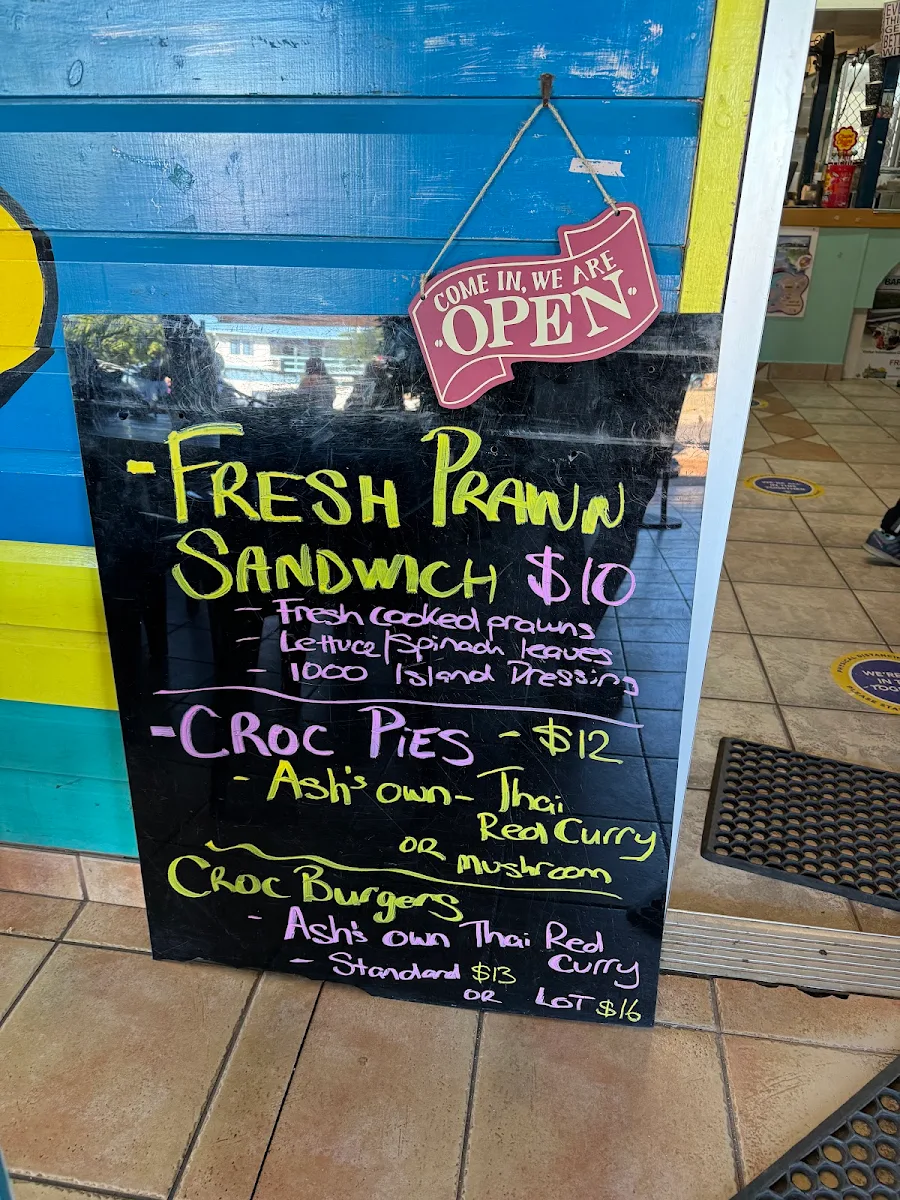 COME IN, WE ARE
OPEN
- FRESH PRAWN
SANDWICH $10
- Fresh cooked prawns
- Lettuce/Spinach leaves
- 1000 Island Dressing
- CROC PIES - $12
- Ash's own - Thai
Red Curry
OR Mushroom
CROC Burgers
- Ash's own Thai Red
Curry
- Standard $13
OR LOT $16